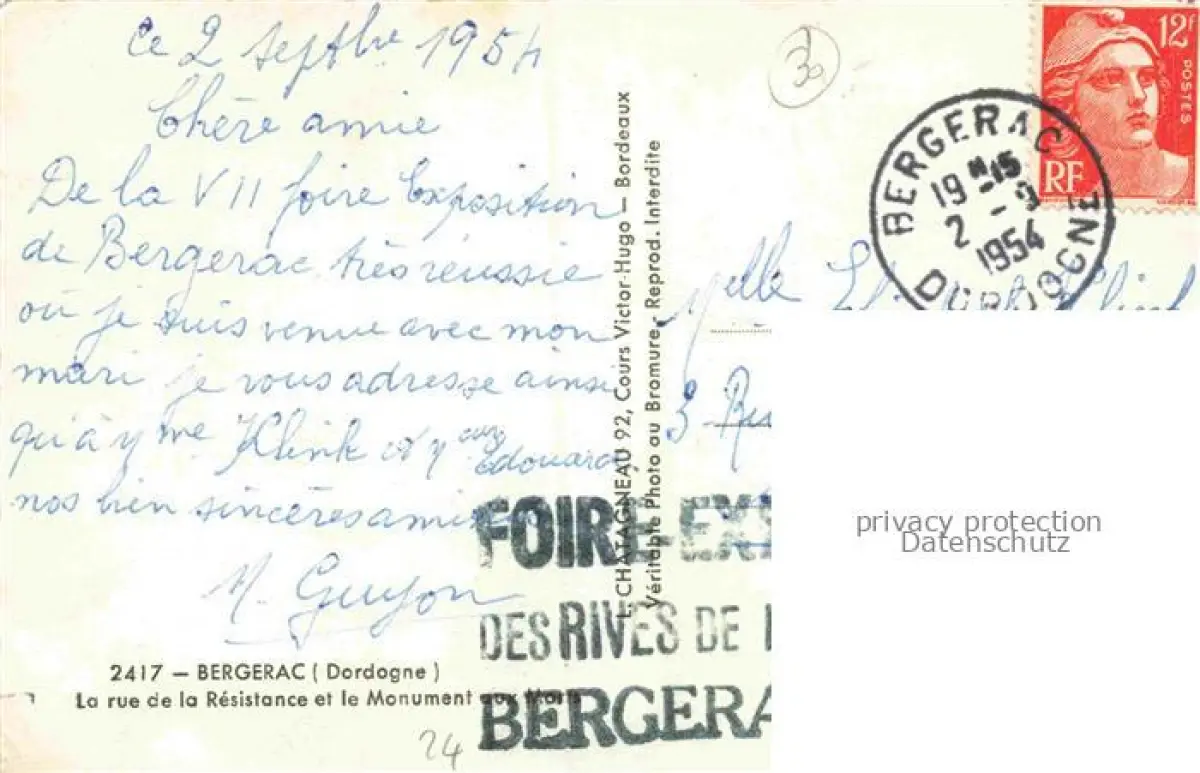 ce 2 septbre 1954
Chère amie
De la VII foire Exposition
de Bergerac très réussie
où je suis venue avec mon
mari je vous adresse ainsi
qu'à Mme Klink et
Edouard
nos bien sincères
M. Guyon
2417 — BERGERAC (Dordogne)
La rue de la Résistance et le Monument aux Morts
24
L. CHATAGNEAU 92, Cours Victor-Hugo — Bordeaux
Véritable Photo au Bromure - Reprod. Interdite
30
12F
POSTES
RF
BERGERAC
19 H 15
2 - 9
1954
DORDOGNE
Melle
3 Rue
FOIRE-EX
DES RIVES DE
BERGERA
privacy protection
Datenschutz